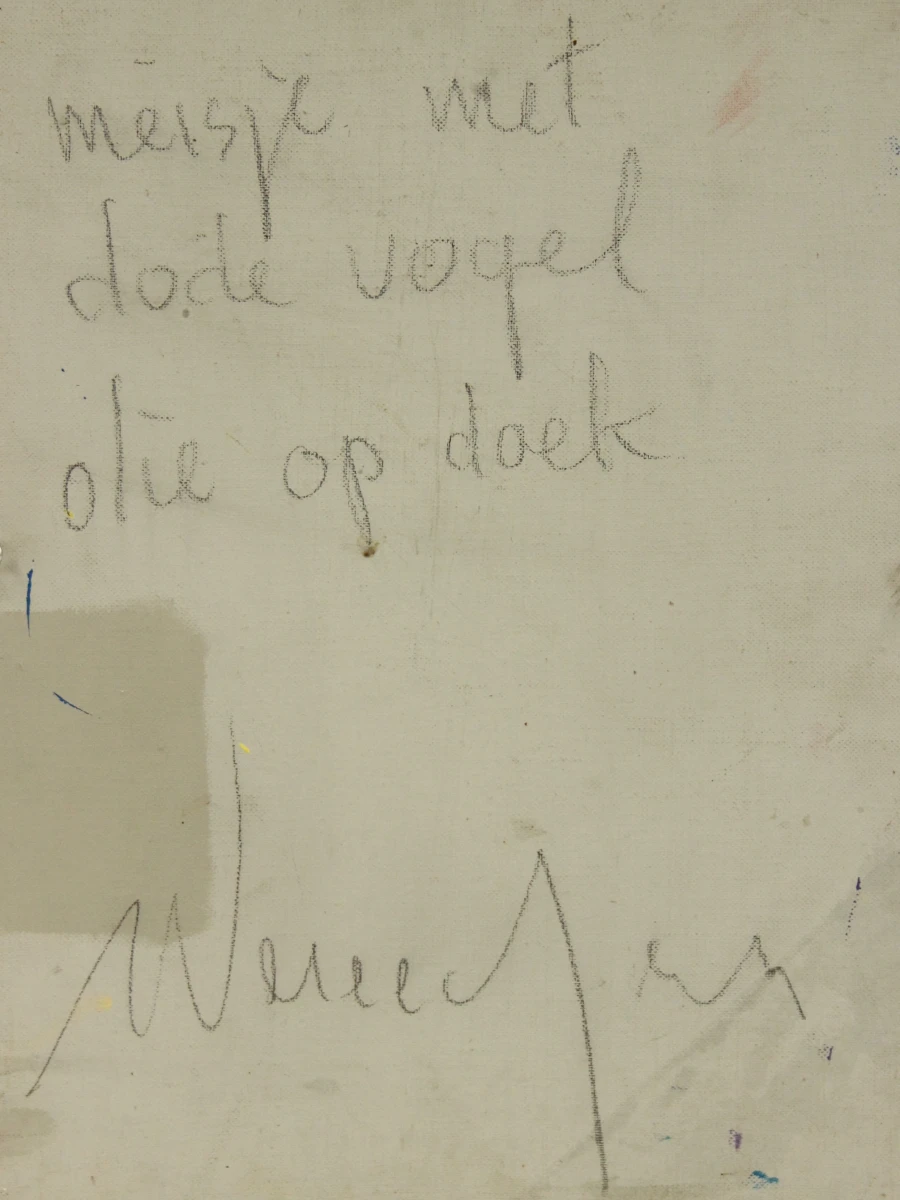 meisje met
dode vogel
olie op doek